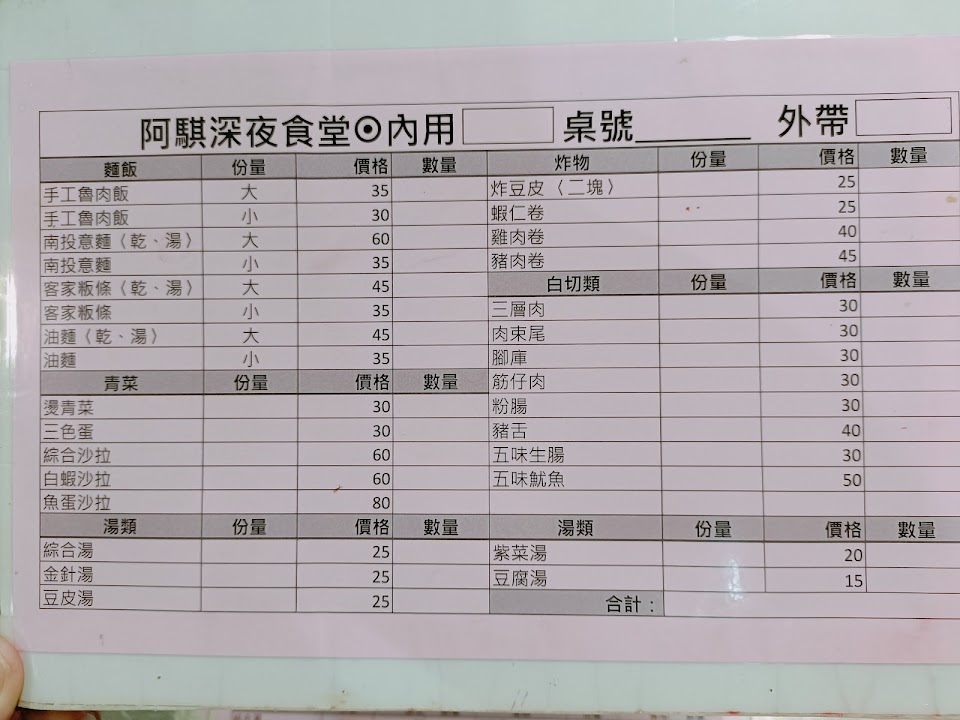 阿騏深夜食堂⊙內用 桌號______ 外帶
麵飯 份量 價格 數量
手工魯肉飯 大 35
手工魯肉飯 小 30
南投意麵（乾、湯） 大 60
南投意麵 小 35
客家粄條（乾、湯） 大 45
客家粄條 小 35
油麵（乾、湯） 大 45
油麵 小 35
青菜 份量 價格 數量
燙青菜 30
三色蛋 30
綜合沙拉 60
白蝦沙拉 60
魚蛋沙拉 80
湯類 份量 價格 數量
綜合湯 25
金針湯 25
豆皮湯 25
炸物 份量 價格 數量
炸豆皮（二塊） 25
蝦仁卷 25
雞肉卷 40
豬肉卷 45
白切類 份量 價格 數量
三層肉 30
肉束尾 30
腳庫 30
筋仔肉 30
粉腸 30
豬舌 40
五味生腸 30
五味魷魚 50
湯類 份量 價格 數量
紫菜湯 20
豆腐湯 15
合計：